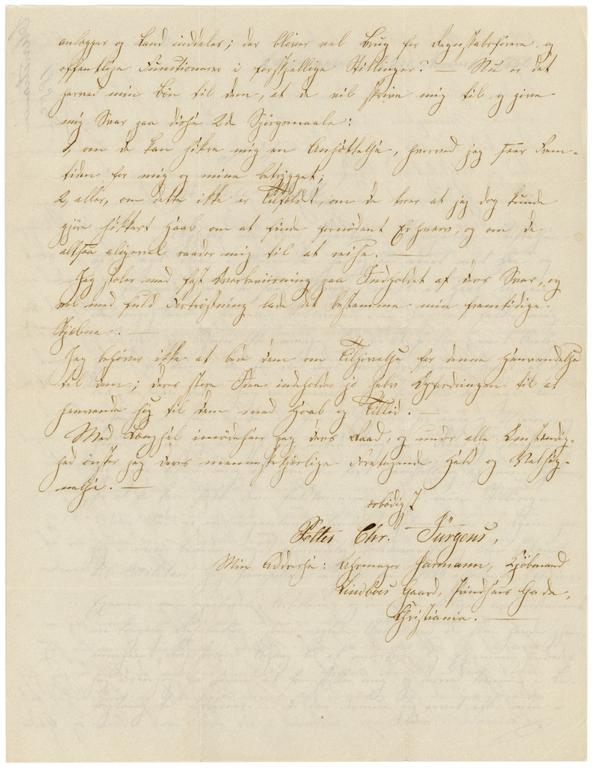 anlægges og Land inddeles; der bliver vel Brug for Regnskabsførere og
offentlige Functionærer i forskjellige Stillinger? — Nu er det
herved min Bøn til dem, at de vil skrive mig til og give
mig Svar paa disse 2de Spörgsmaale:
1, om de kan sikre mig en Ansættelse, hvorved jeg seer Frem-
tiden for mig og mine betrygget;
2, eller, om dette ikke er Tilfældet, om de troer at jeg dog kunde
gjøre sikkert Haab om at finde fornödent Erhverv, og om de
altsaa alligevel raader mig til at reise. —
Jeg stoler med fast Overbeviisning paa Indholdet af deres Svar, og
vil med fuld Fortröstning lade det bestemme min fremtidige
Skjæbne. —
Jeg behöver ikke at bede dem om Tilgivelse for denne Henvendelse
til dem; deres store Idee indeholder jo selv Opfordringen til at
henvende sig til dem med Haab og Tillid. —
Med Længsel imödeseer jeg deres Raad, og under alle Omstændig-
heder önsker jeg deres menneskekjærlige Foretagende Held og Velsig-
nelse. —
ærbødigst
Peltes Chr. Jürgens,
Min Addresse: Uhrmager Harmann, Kjöbmand
Lindboes Gaard, Prindsens Gade,
Christiania. —